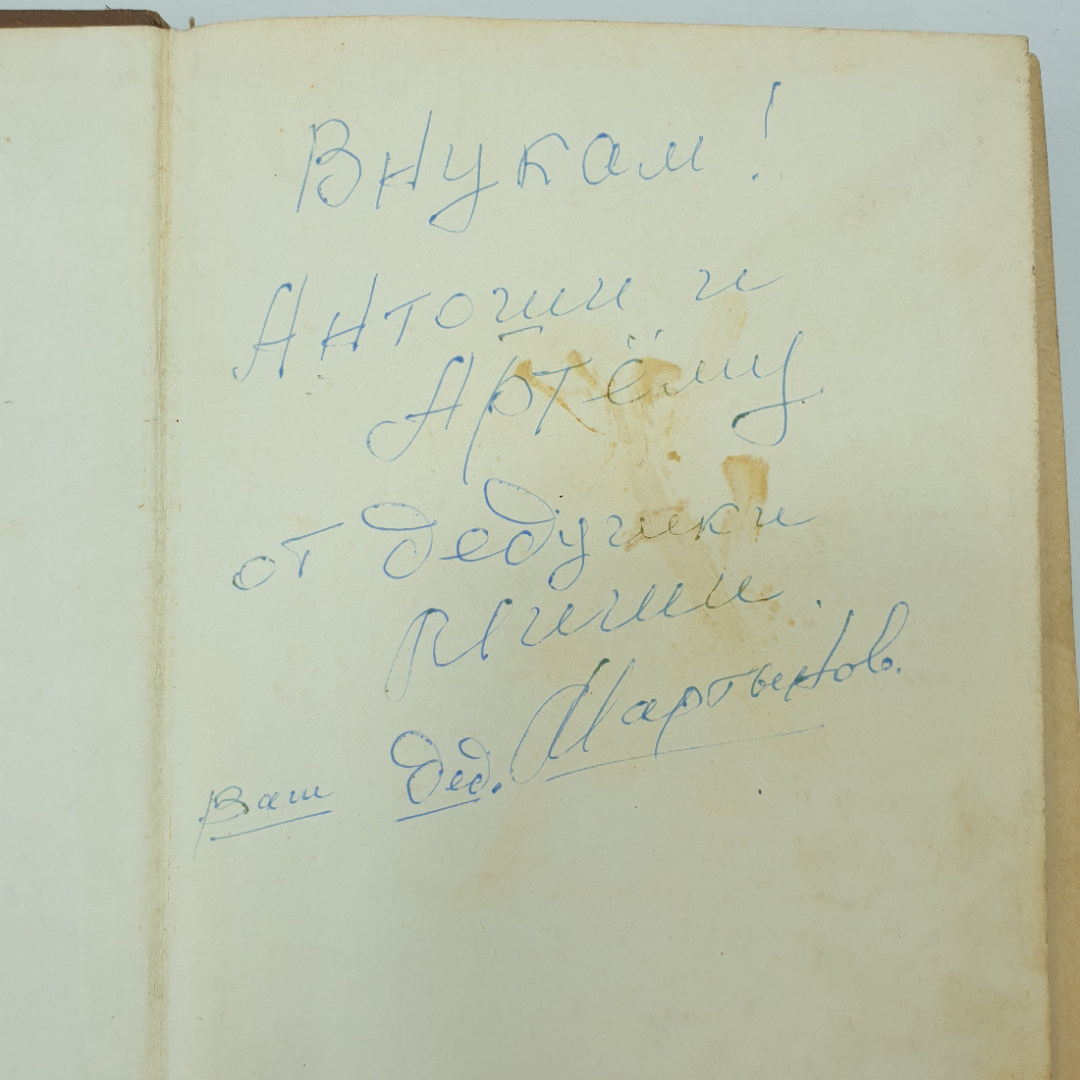 Внукам!
Антоши и
Артёму
от дедушки
Миши.
ваш дед. Мартынов.